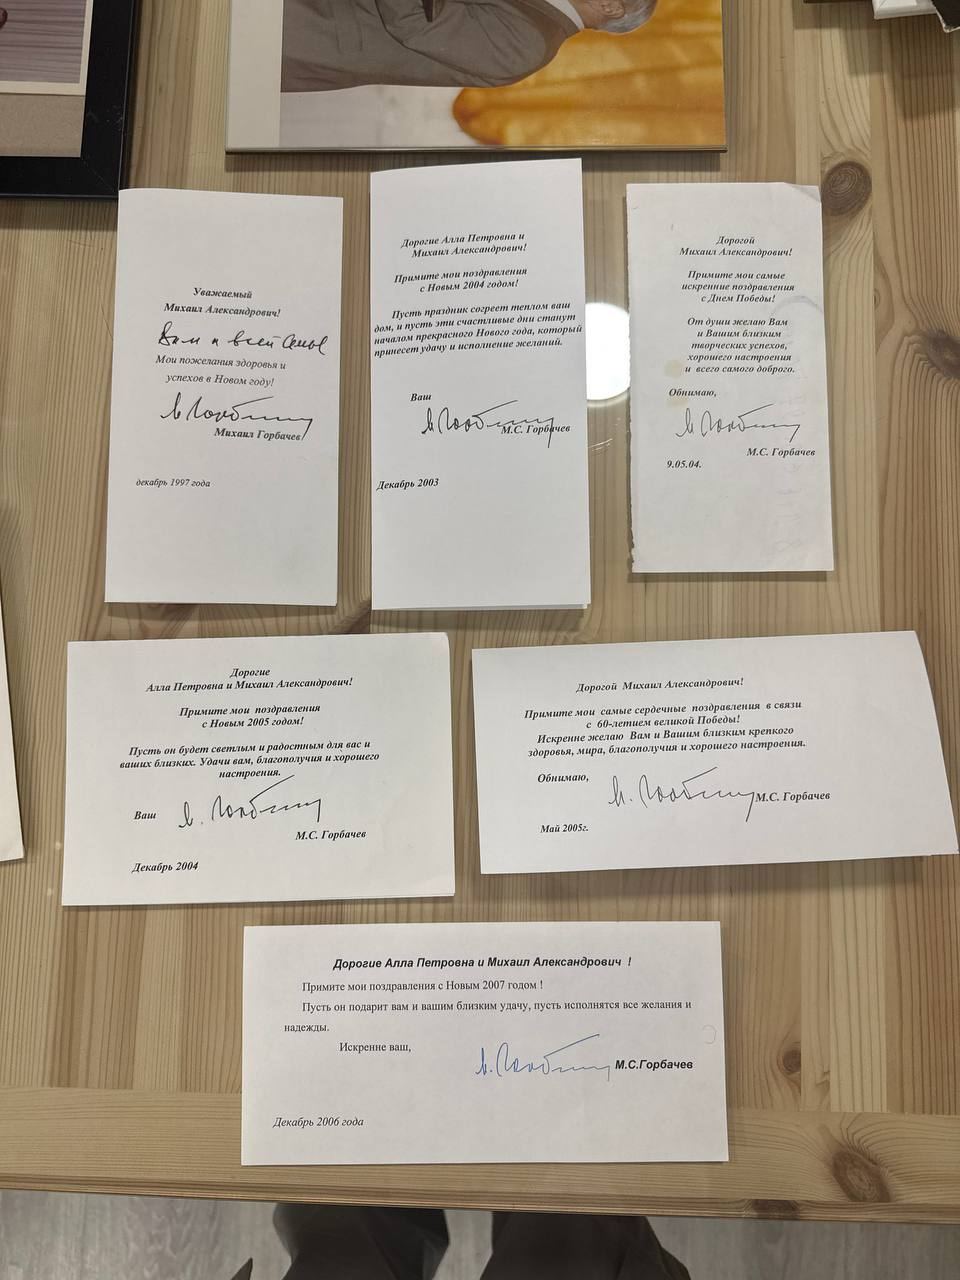 Уважаемый
Михаил Александрович!
Вам и всей семье
Мои пожелания здоровья и
успехов в Новом году!
Михаил Горбачев
декабрь 1997 года
Дорогие Алла Петровна и
Михаил Александрович!
Примите мои поздравления
с Новым 2004 годом!
Пусть праздник согреет теплом ваш
дом, и пусть эти счастливые дни станут
началом прекрасного Нового года, который
принесет удачу и исполнение желаний.
Ваш
М.С. Горбачев
Декабрь 2003
Дорогой
Михаил Александрович!
Примите мои самые
искренние поздравления
с Днем Победы!
От души желаю Вам
и Вашим близким
творческих успехов,
хорошего настроения
и всего самого доброго.
Обнимаю,
М.С. Горбачев
9.05.04.
Дорогие
Алла Петровна и Михаил Александрович!
Примите мои поздравления
с Новым 2005 годом!
Пусть он будет светлым и радостным для вас и
ваших близких. Удачи вам, благополучия и хорошего
настроения.
Ваш
М.С. Горбачев
Декабрь 2004
Дорогой Михаил Александрович!
Примите мои самые сердечные поздравления в связи
с 60-летием великой Победы!
Искренне желаю Вам и Вашим близким крепкого
здоровья, мира, благополучия и хорошего настроения.
Обнимаю,
М.С. Горбачев
Май 2005г.
Дорогие Алла Петровна и Михаил Александрович !
Примите мои поздравления с Новым 2007 годом !
Пусть он подарит вам и вашим близким удачу, пусть исполнятся все желания и
надежды.
Искренне ваш,
М.С.Горбачев
Декабрь 2006 года